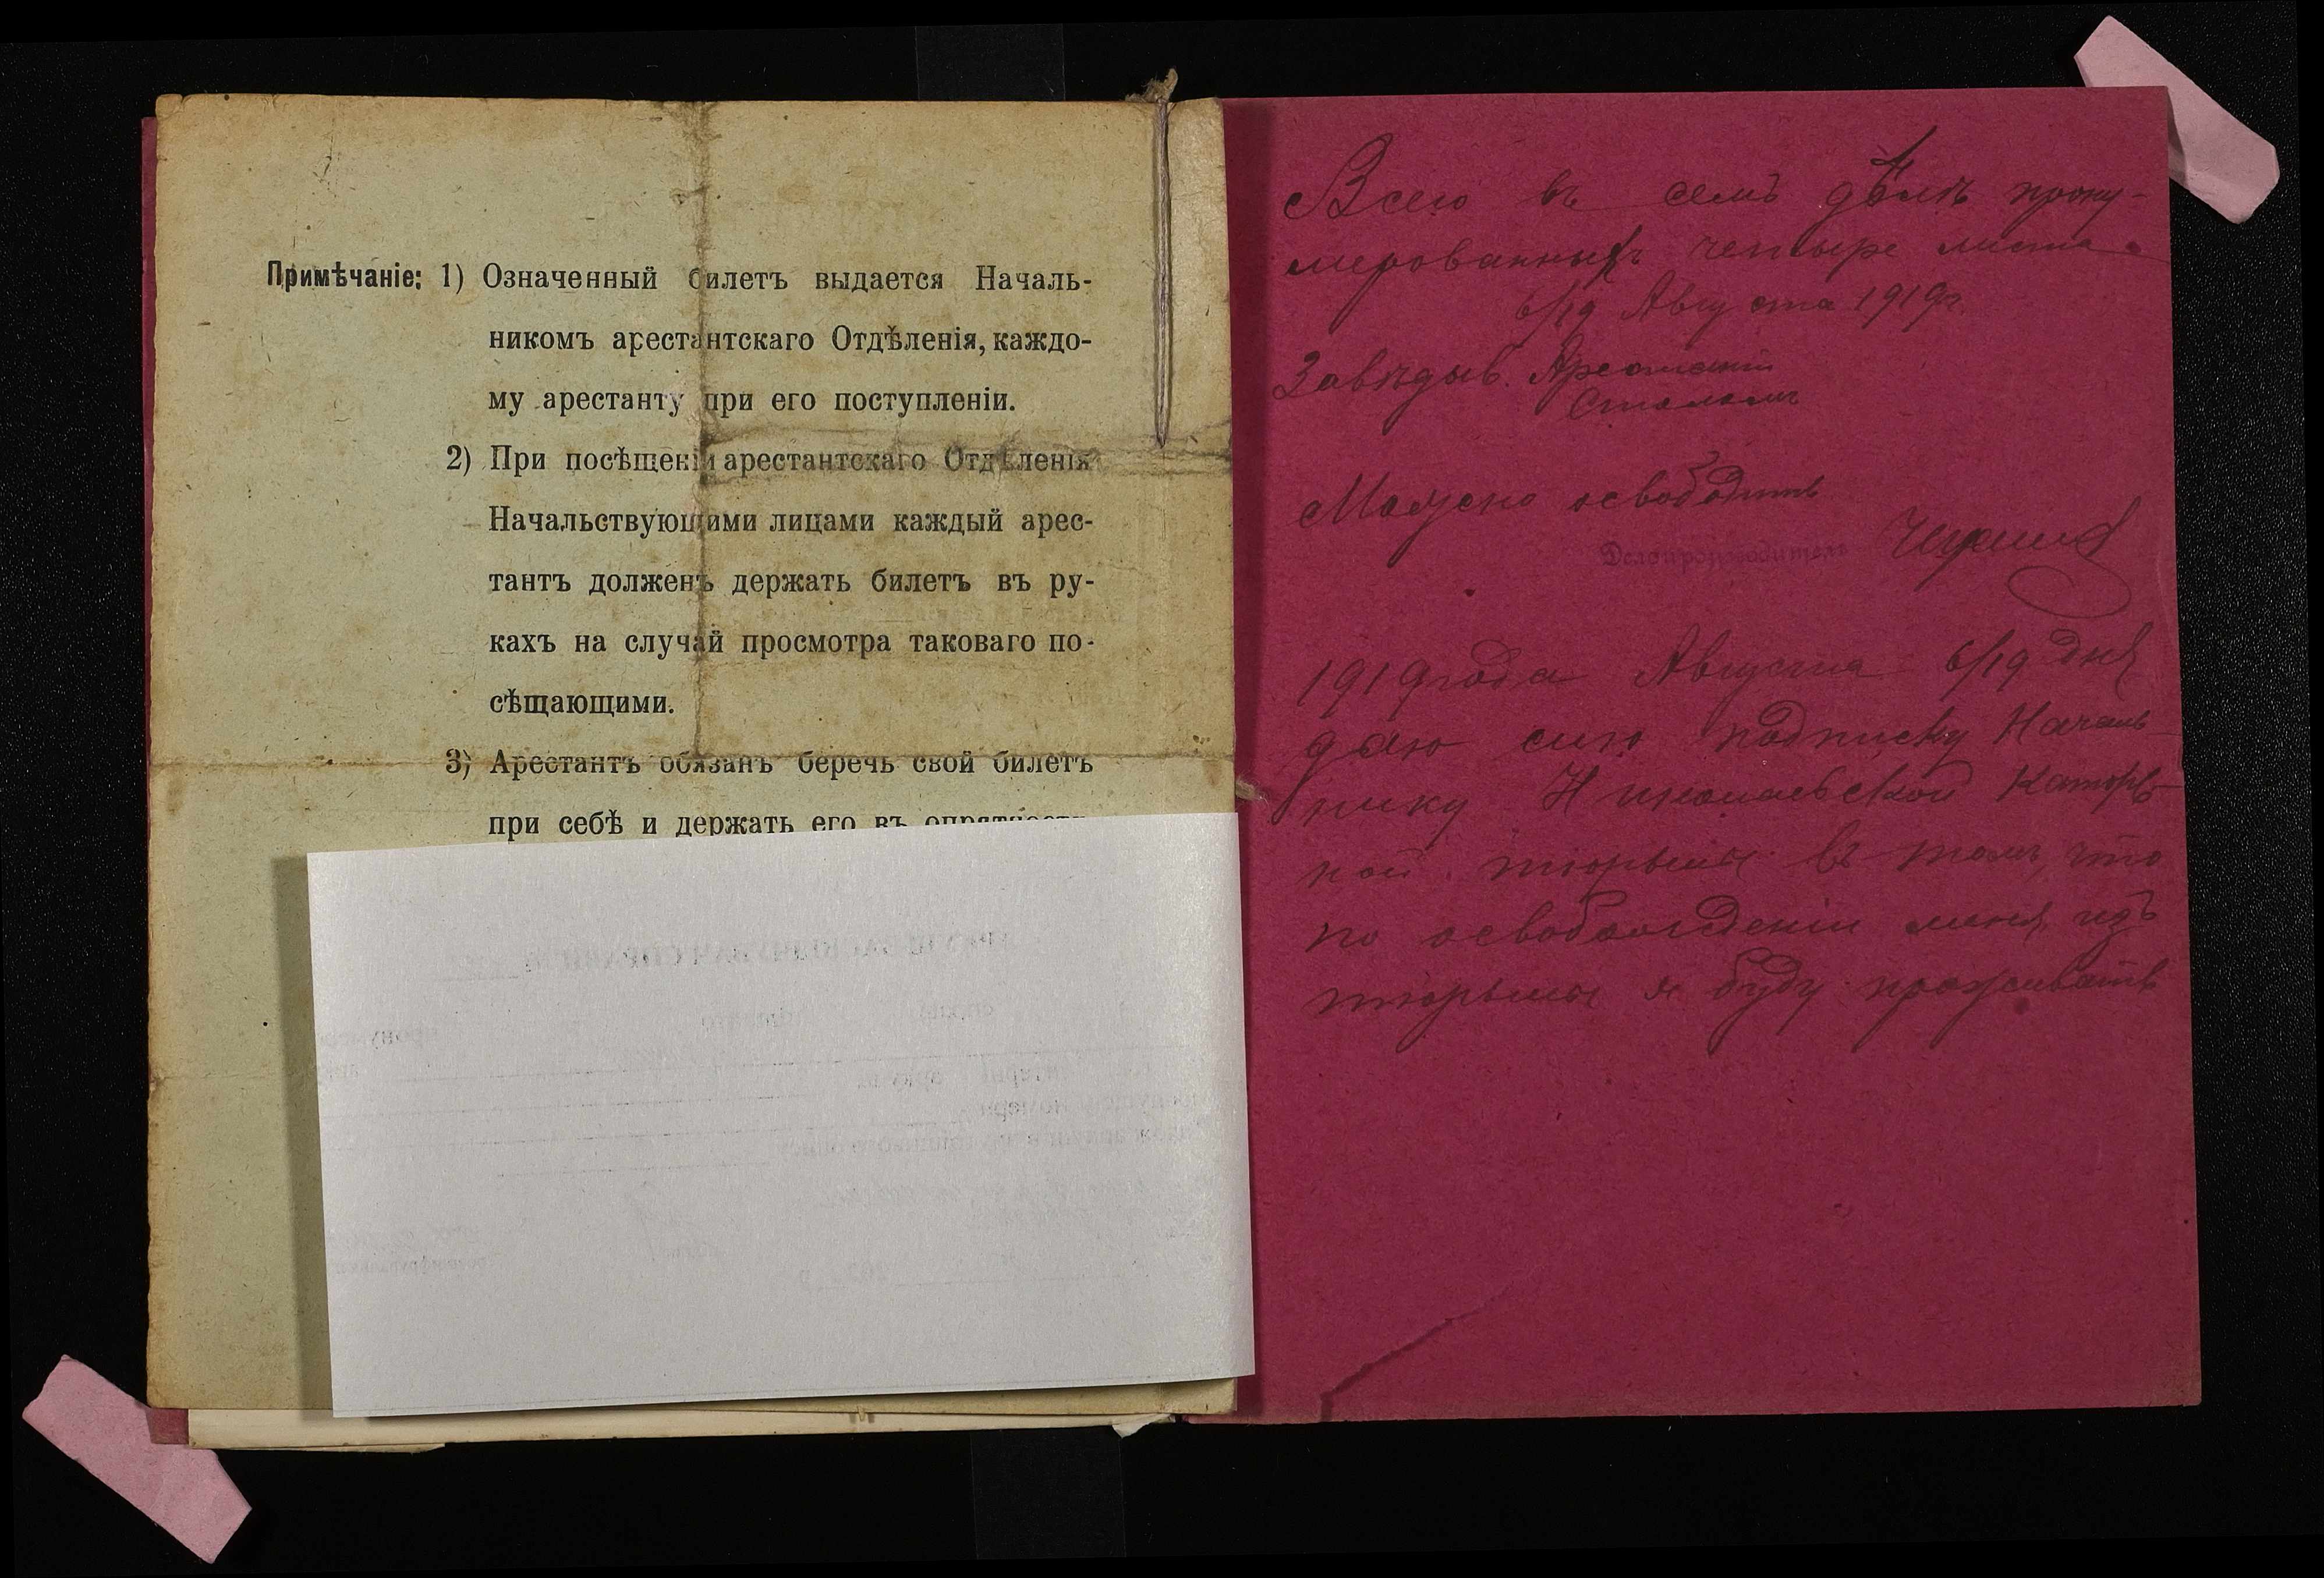 Примѣчаніе: 1) Означенный билетъ выдается Началь-
никомъ арестантскаго Отдѣленія, каждо-
му арестанту при его поступленіи.
2) При посѣщеніи арестантскаго Отдѣленія
Начальствующими лицами каждый арес-
тантъ долженъ держать билетъ въ ру-
кахъ на случай просмотра таковаго по-
сѣщающими.
3) Арестантъ обязанъ беречь свой билетъ
при себѣ и держать его въ опрятности
Всего въ семъ дѣлѣ прону-
мерованныхъ четыре листа
6/19 Августа 1919г.
Завѣдыв. Арестант
Столомъ
Можно освободить
Делопроизводитель
1919 года Августа 6/19 дня
даю сию подписку Началь
нику Николаевской Каторж-
ной тюрьмы въ томъ, что
по освобождении меня изъ
тюрьмы я буду проживать